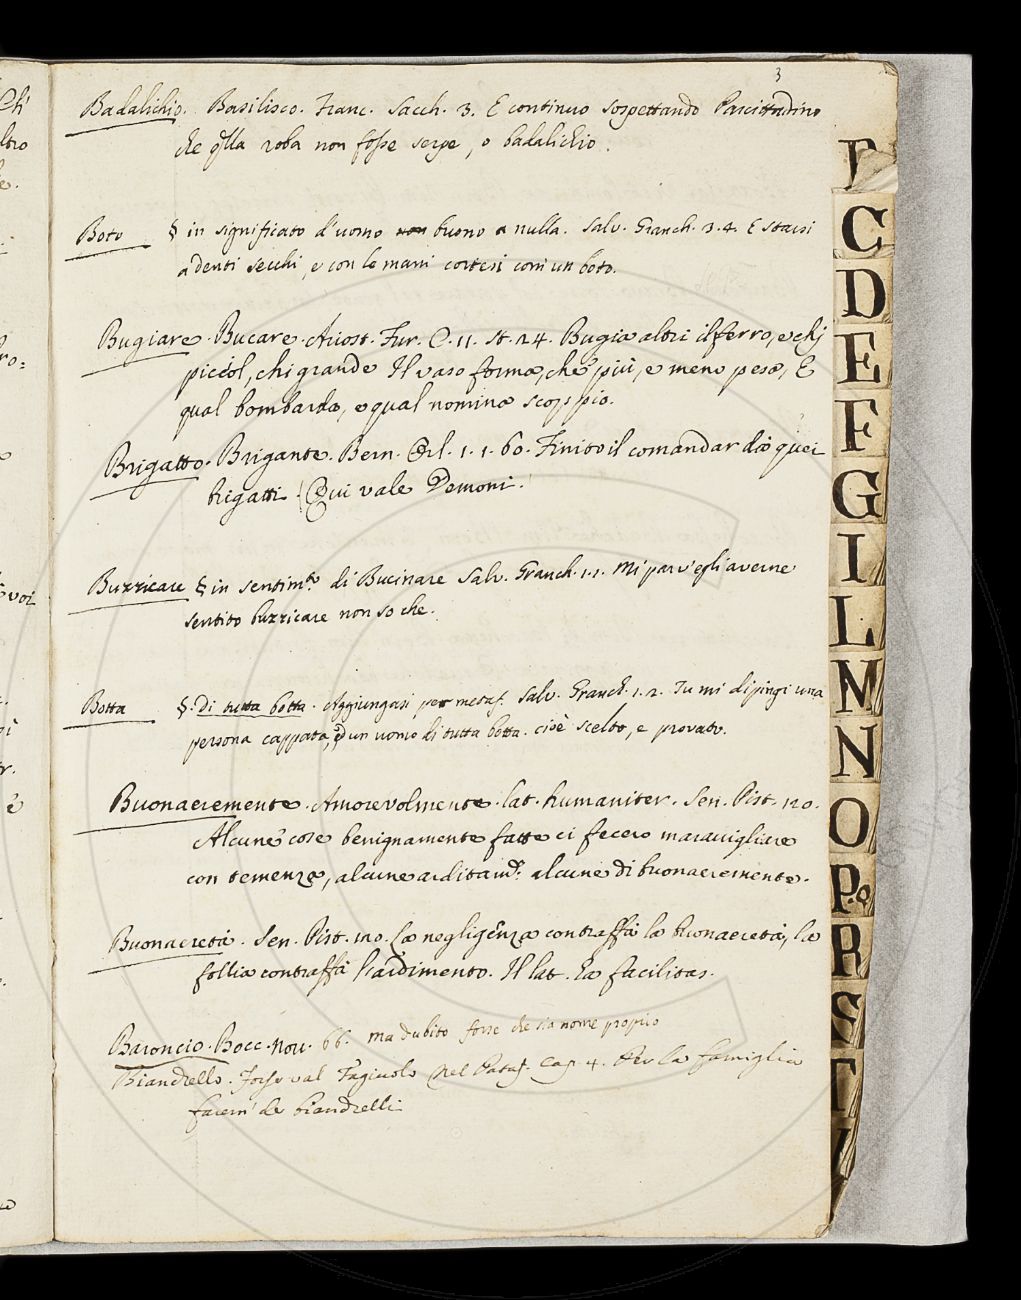 3
Badalichio. Basilisco. Franc. Sacch. 3. E continuo sospettando Parcittadino
che qlla roba non fosse serpe, o badalichio.
Boto § in significato d'uomo non buono a nulla. Salv. Granch. 3.4. E starsi
a denti secchi, e con le mani cortesi com' un boto.
Bugiare. Bucare. Ariost. Fur. C. 11. st. 24. Bugia altri il ferro, e chi
picciol, chi grande Il vaso forma, che più, e meno pesa, E
qual bombarda, e qual nomina scoppio.
Brigatto. Brigante. Bern. Orl. 1. 1. 60. Finito il comandar da quei
brigatti. (Qui vale Demoni.)
Buzzicare § in sentim.to di Bucinare Salv. Granch. 1.1. Mi parv' egli averne
sentito buzzicare non so che.
Botta §. Di tutta botta. Aggiungasi per metaf. Salv. Granch. 1. 2. Tu mi dipingi una
persona cappata, ed un uomo di tutta botta. cioè scelto, e provato.
Buonaeremente. Amorevolmente. lat. humaniter. Sen. Pist. 120.
Alcune cose benignamente fatte ci fecero maravigliare
con temenza, alcune arditam. alcune di buonaeremente.
Buonaeretà. Sen. Pist. 120. La negligenza contraffà la buonaeretà, la
follia contraffà l'ardimento. Il lat. ha facilitas.
Baroncio. Bocc. Nov. 66. ma dubito forse che sia nome proprio
Biandrello. Forse val Fagiuolo nel Pataf. Cap. 4. Per la famiglia
facem' de biandrelli
C
D
E
F
G
I
L
M
N
O
P.Q
R
S
T